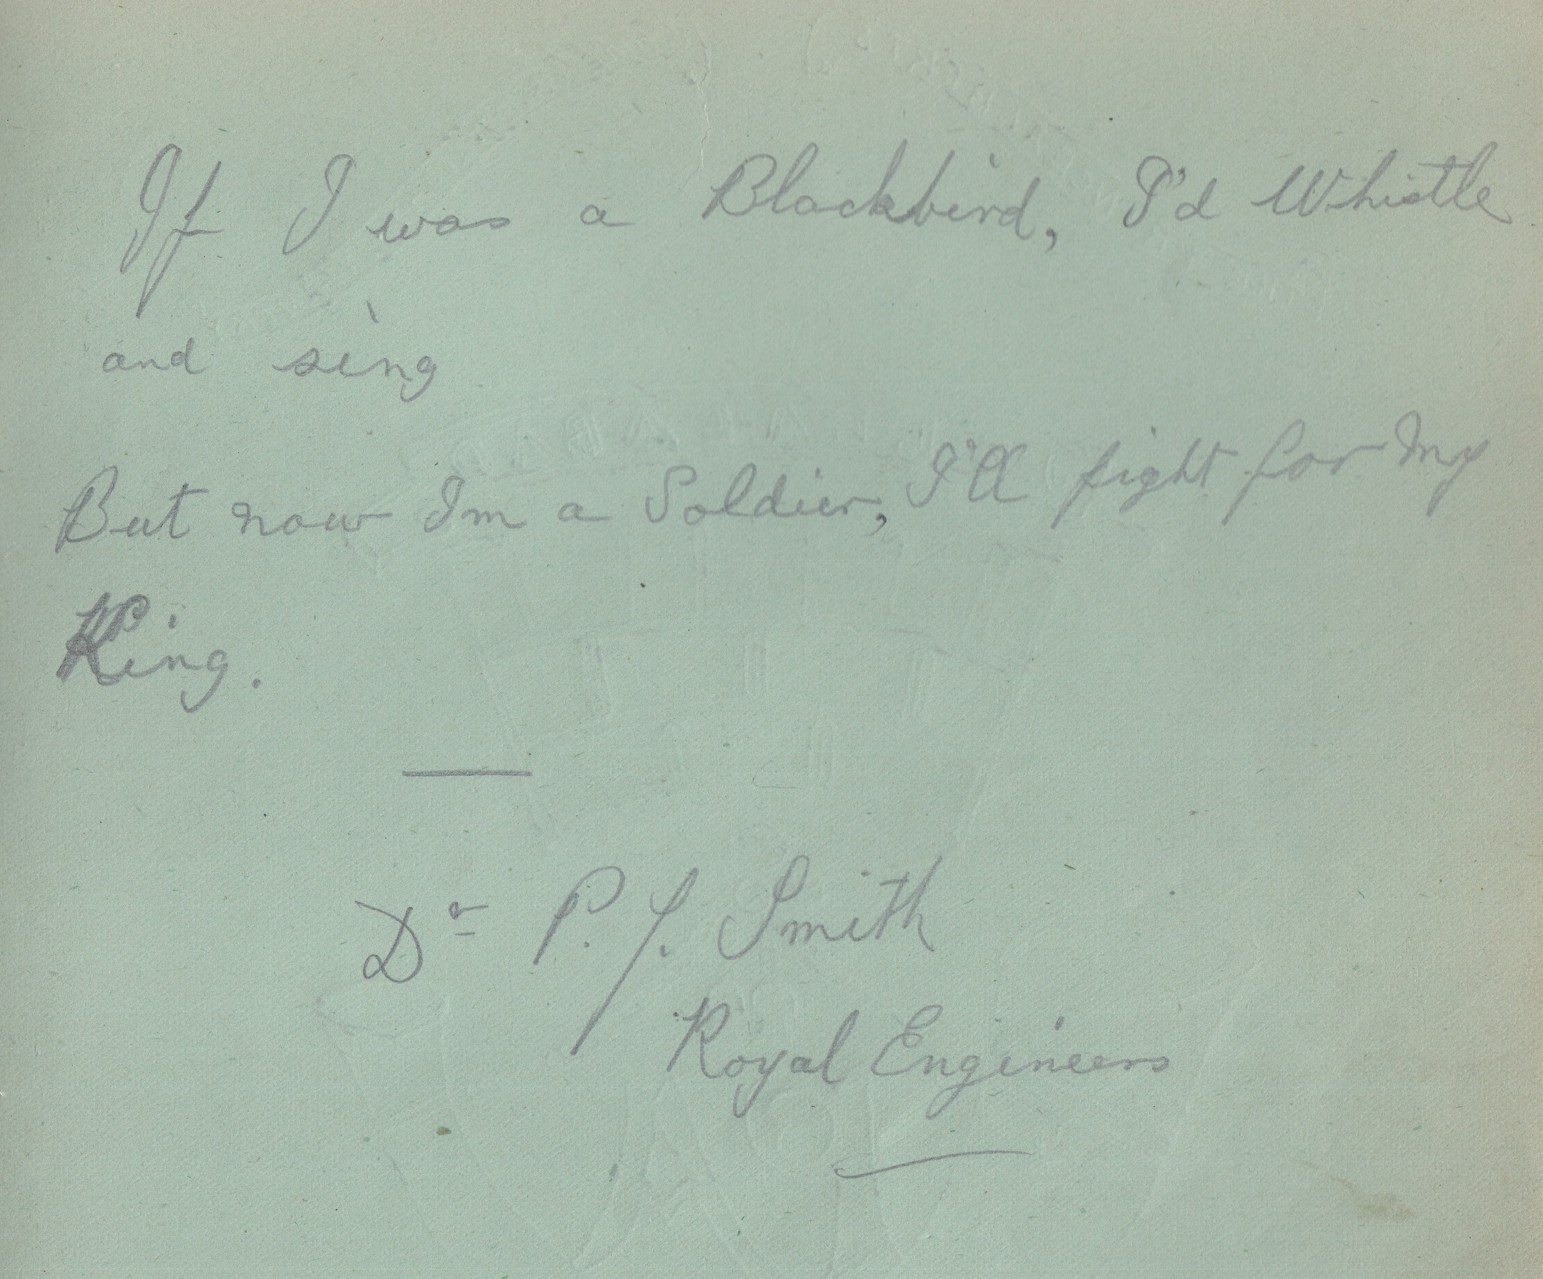 If I was a Blackbird, I'd Whistle
and sing
But now Im a Soldier, I'll fight for my
King.
Dr P. J. Smith
Royal Engineers